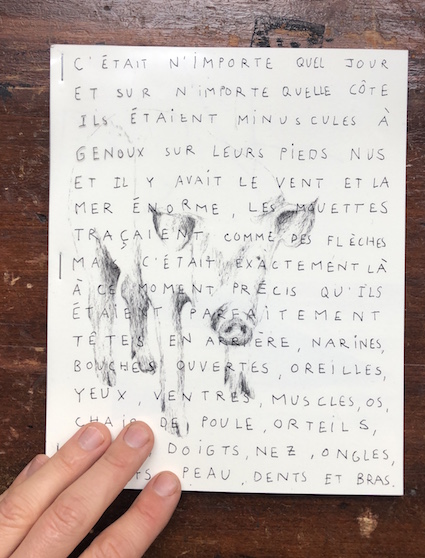 C'ÉTAIT N'IMPORTE QUEL JOUR
ET SUR N'IMPORTE QUELLE CÔTE
ILS ÉTAIENT MINUSCULES À
GENOUX SUR LEURS PIEDS NUS
ET IL Y AVAIT LE VENT ET LA
MER ÉNORME, LES MOUETTES
TRAÇAIENT COMME DES FLÈCHES
MAIS C'ÉTAIT EXACTEMENT LÀ
À CE MOMENT PRÉCIS QU'ILS
ÉTAIENT PARFAITEMENT
TÊTES EN ARRIÈRE, NARINES,
BOUCHES OUVERTES, OREILLES,
YEUX, VENTRES, MUSCLES, OS,
CHAIR DE POULE, ORTEILS,
DOIGTS, NEZ, ONGLES,
PEAU, DENTS ET BRAS.